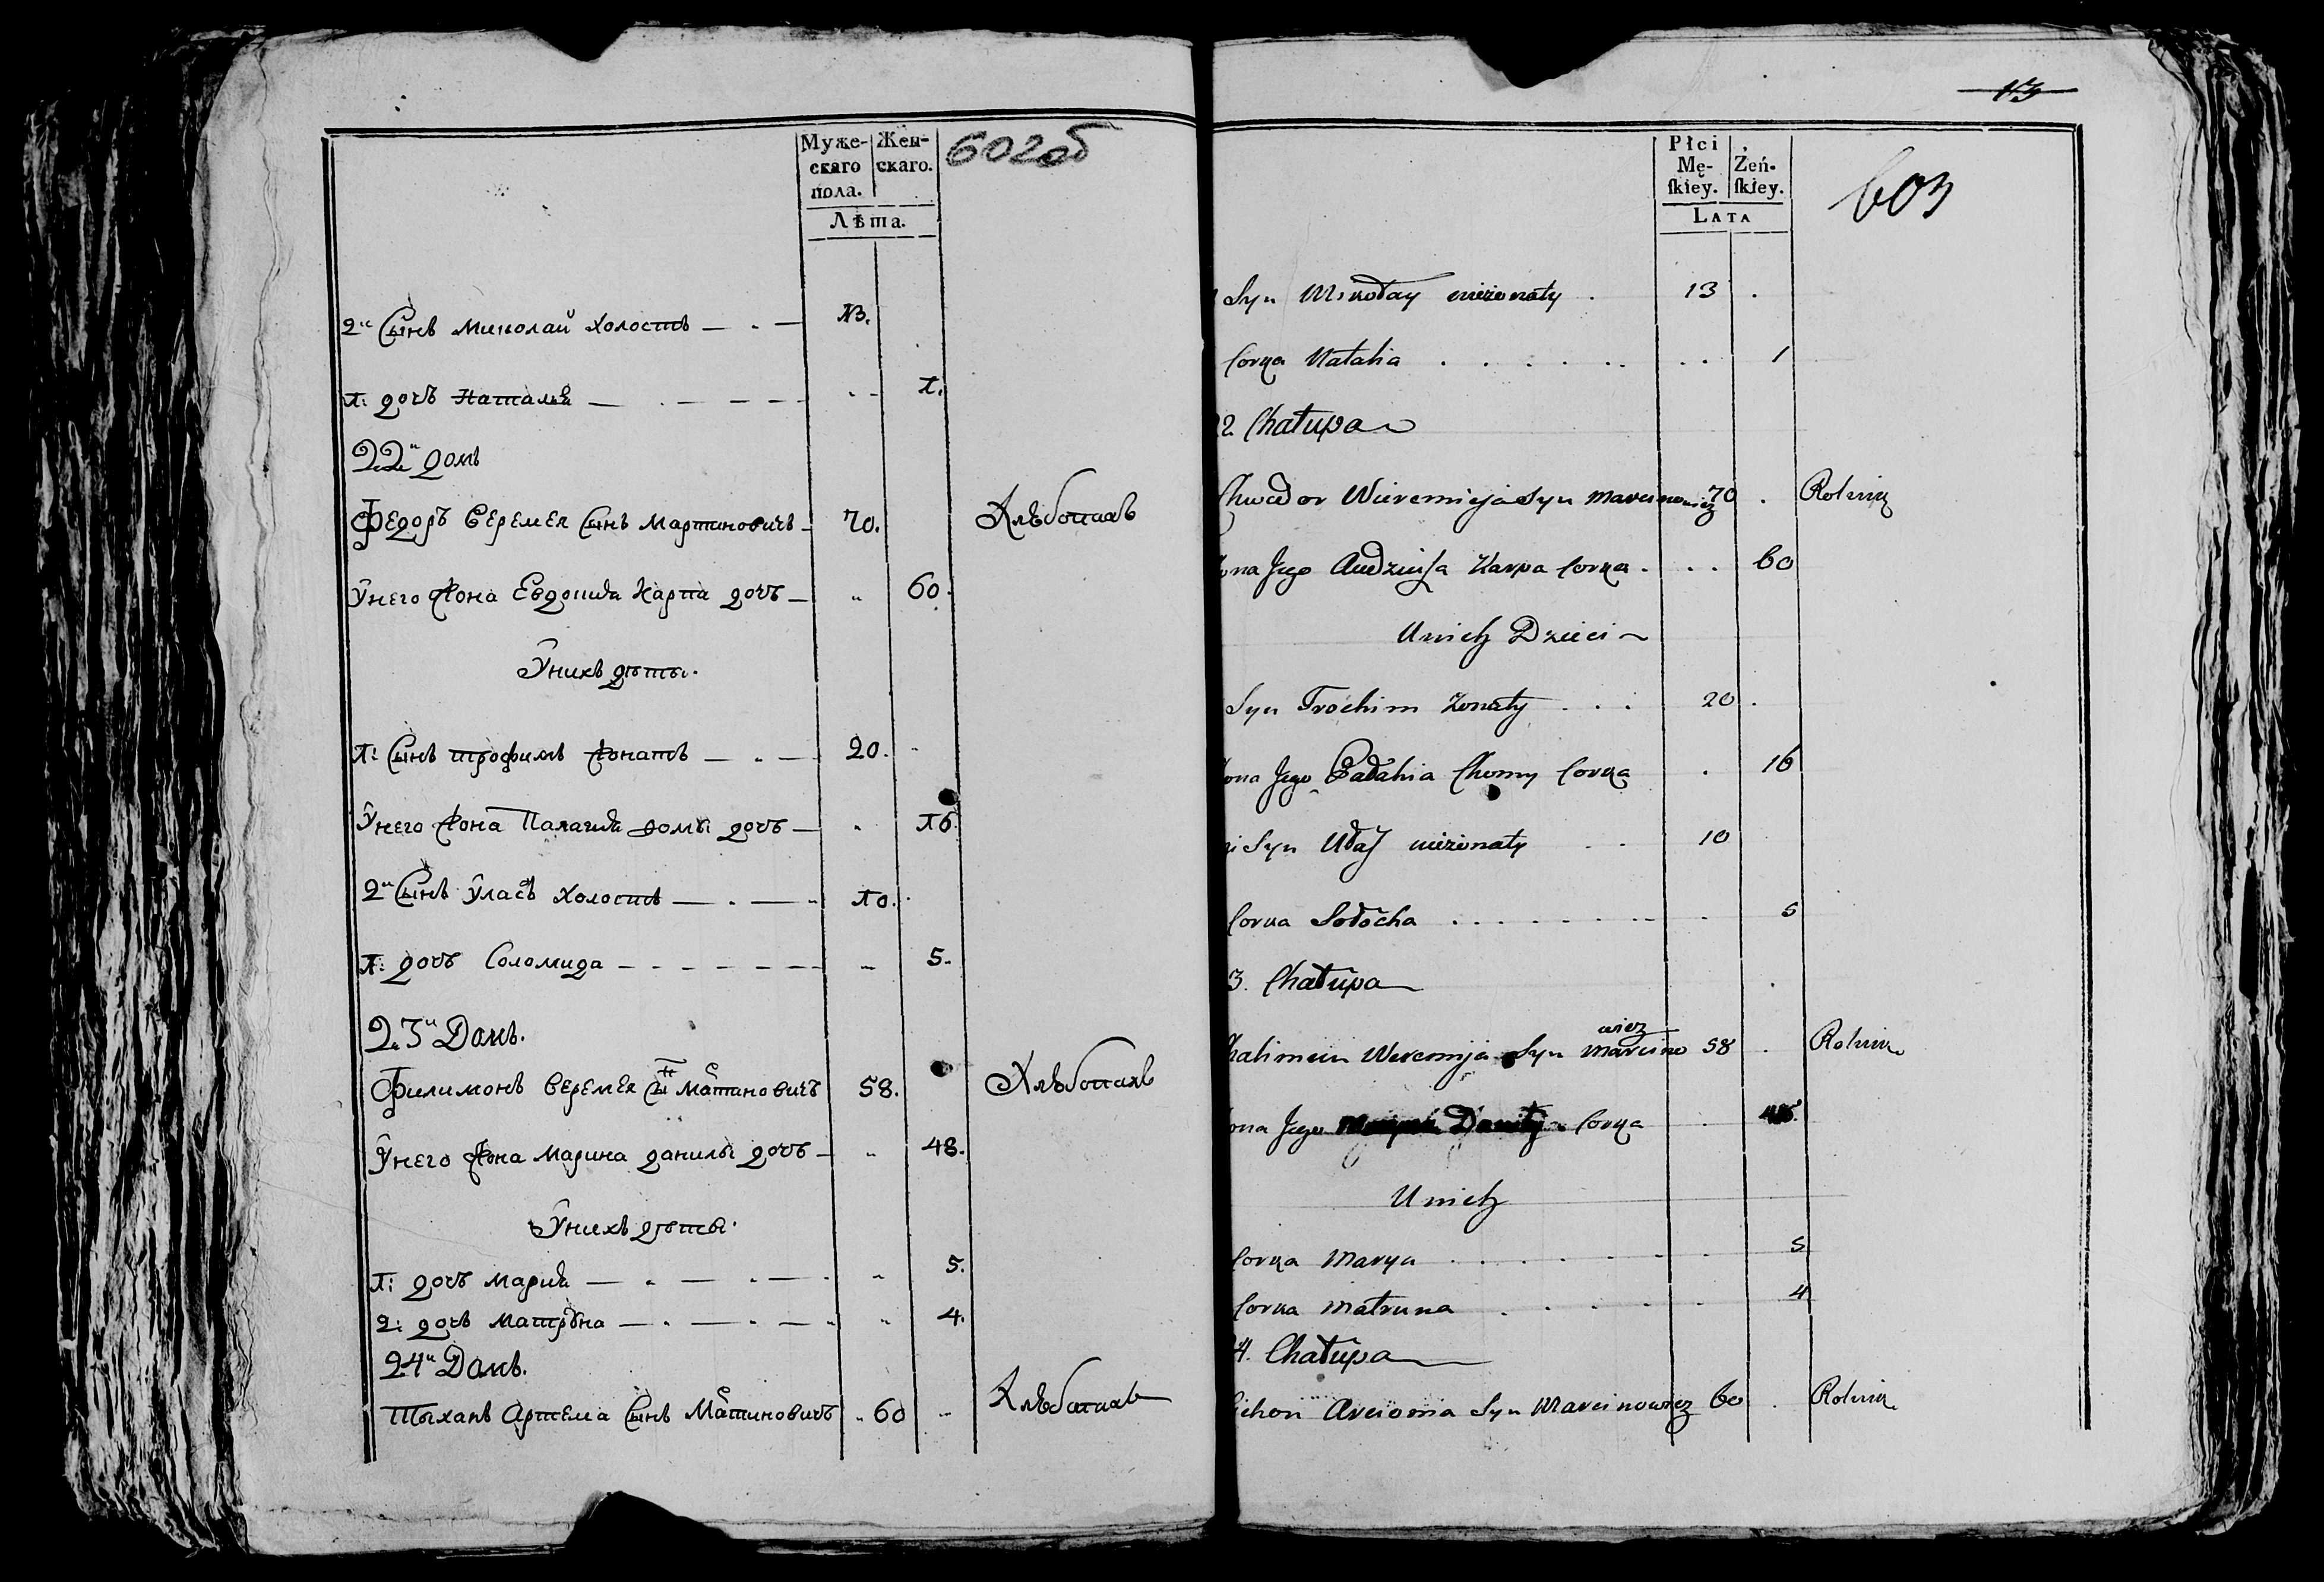 602об
Муже-
скаго
пола.
Жен-
скаго.
Лѣта.
2й Сынъ Миколай холостъ — . — 13.
1: дочъ Наталья — . — — — . . 1.
22й домъ
Федоръ Еремея Сынъ Мартиновичъ — 70. Хлѣбопашъ
Унего жона Евдокия Карпа дочъ — „ 60.
Унихъ дѣты.
1: Сынъ трофимъ жонатъ — . — 20.
Унего жона Палагия фомы дочъ — „ 16.
2й Сынъ Уласъ холостъ — . — „ 10.
1: дочъ Соломида — — — — — — — „ 5.
23й Домъ.
Филимонъ Еремея Сынъ Матиновичъ 58. Хлѣбопашъ
Унего жона Марина данилы дочъ — „ 48.
Унихъ дѣты.
1: дочъ Мария — . — . — . „ 5.
2: дочъ Матруна — . — . — „ „ 4.
24й Домъ.
Тыханъ Артема Сынъ Матиновичъ „ 60 „ Хлѣбопашъ
13
603
Płci
Mę-
ſkiey.
Żeń-
ſkiey.
Lata
Syn Mikołay nieżonaty . 13 .
Corka Natalia . . . . . . . . 1
2. Chałupa
Chwedor Wieremieja Syn Marcinowicz 70 . Rolnik
ona Jego Audziuſa Karpa Corka . . . 60
Unich Dzieci
Syn Trochim Żonaty . . . 20 .
ona Jego Pałahia Chomy Corka . 16
i Syn Ułaſ nieżonaty . . 10
Corka Sołocha . . . . . . . . . 5
3. Chałupa
Chalimon Weremija Syn Marcinowicz 58 . Rolnik
ona Jego Corka .
Unich
Corka Marya . . . . . . . 5
Corka Matruna . . . . . 4
4. Chałupa
ichon Arcioma Syn Marcinowicz 60 . Rolnik